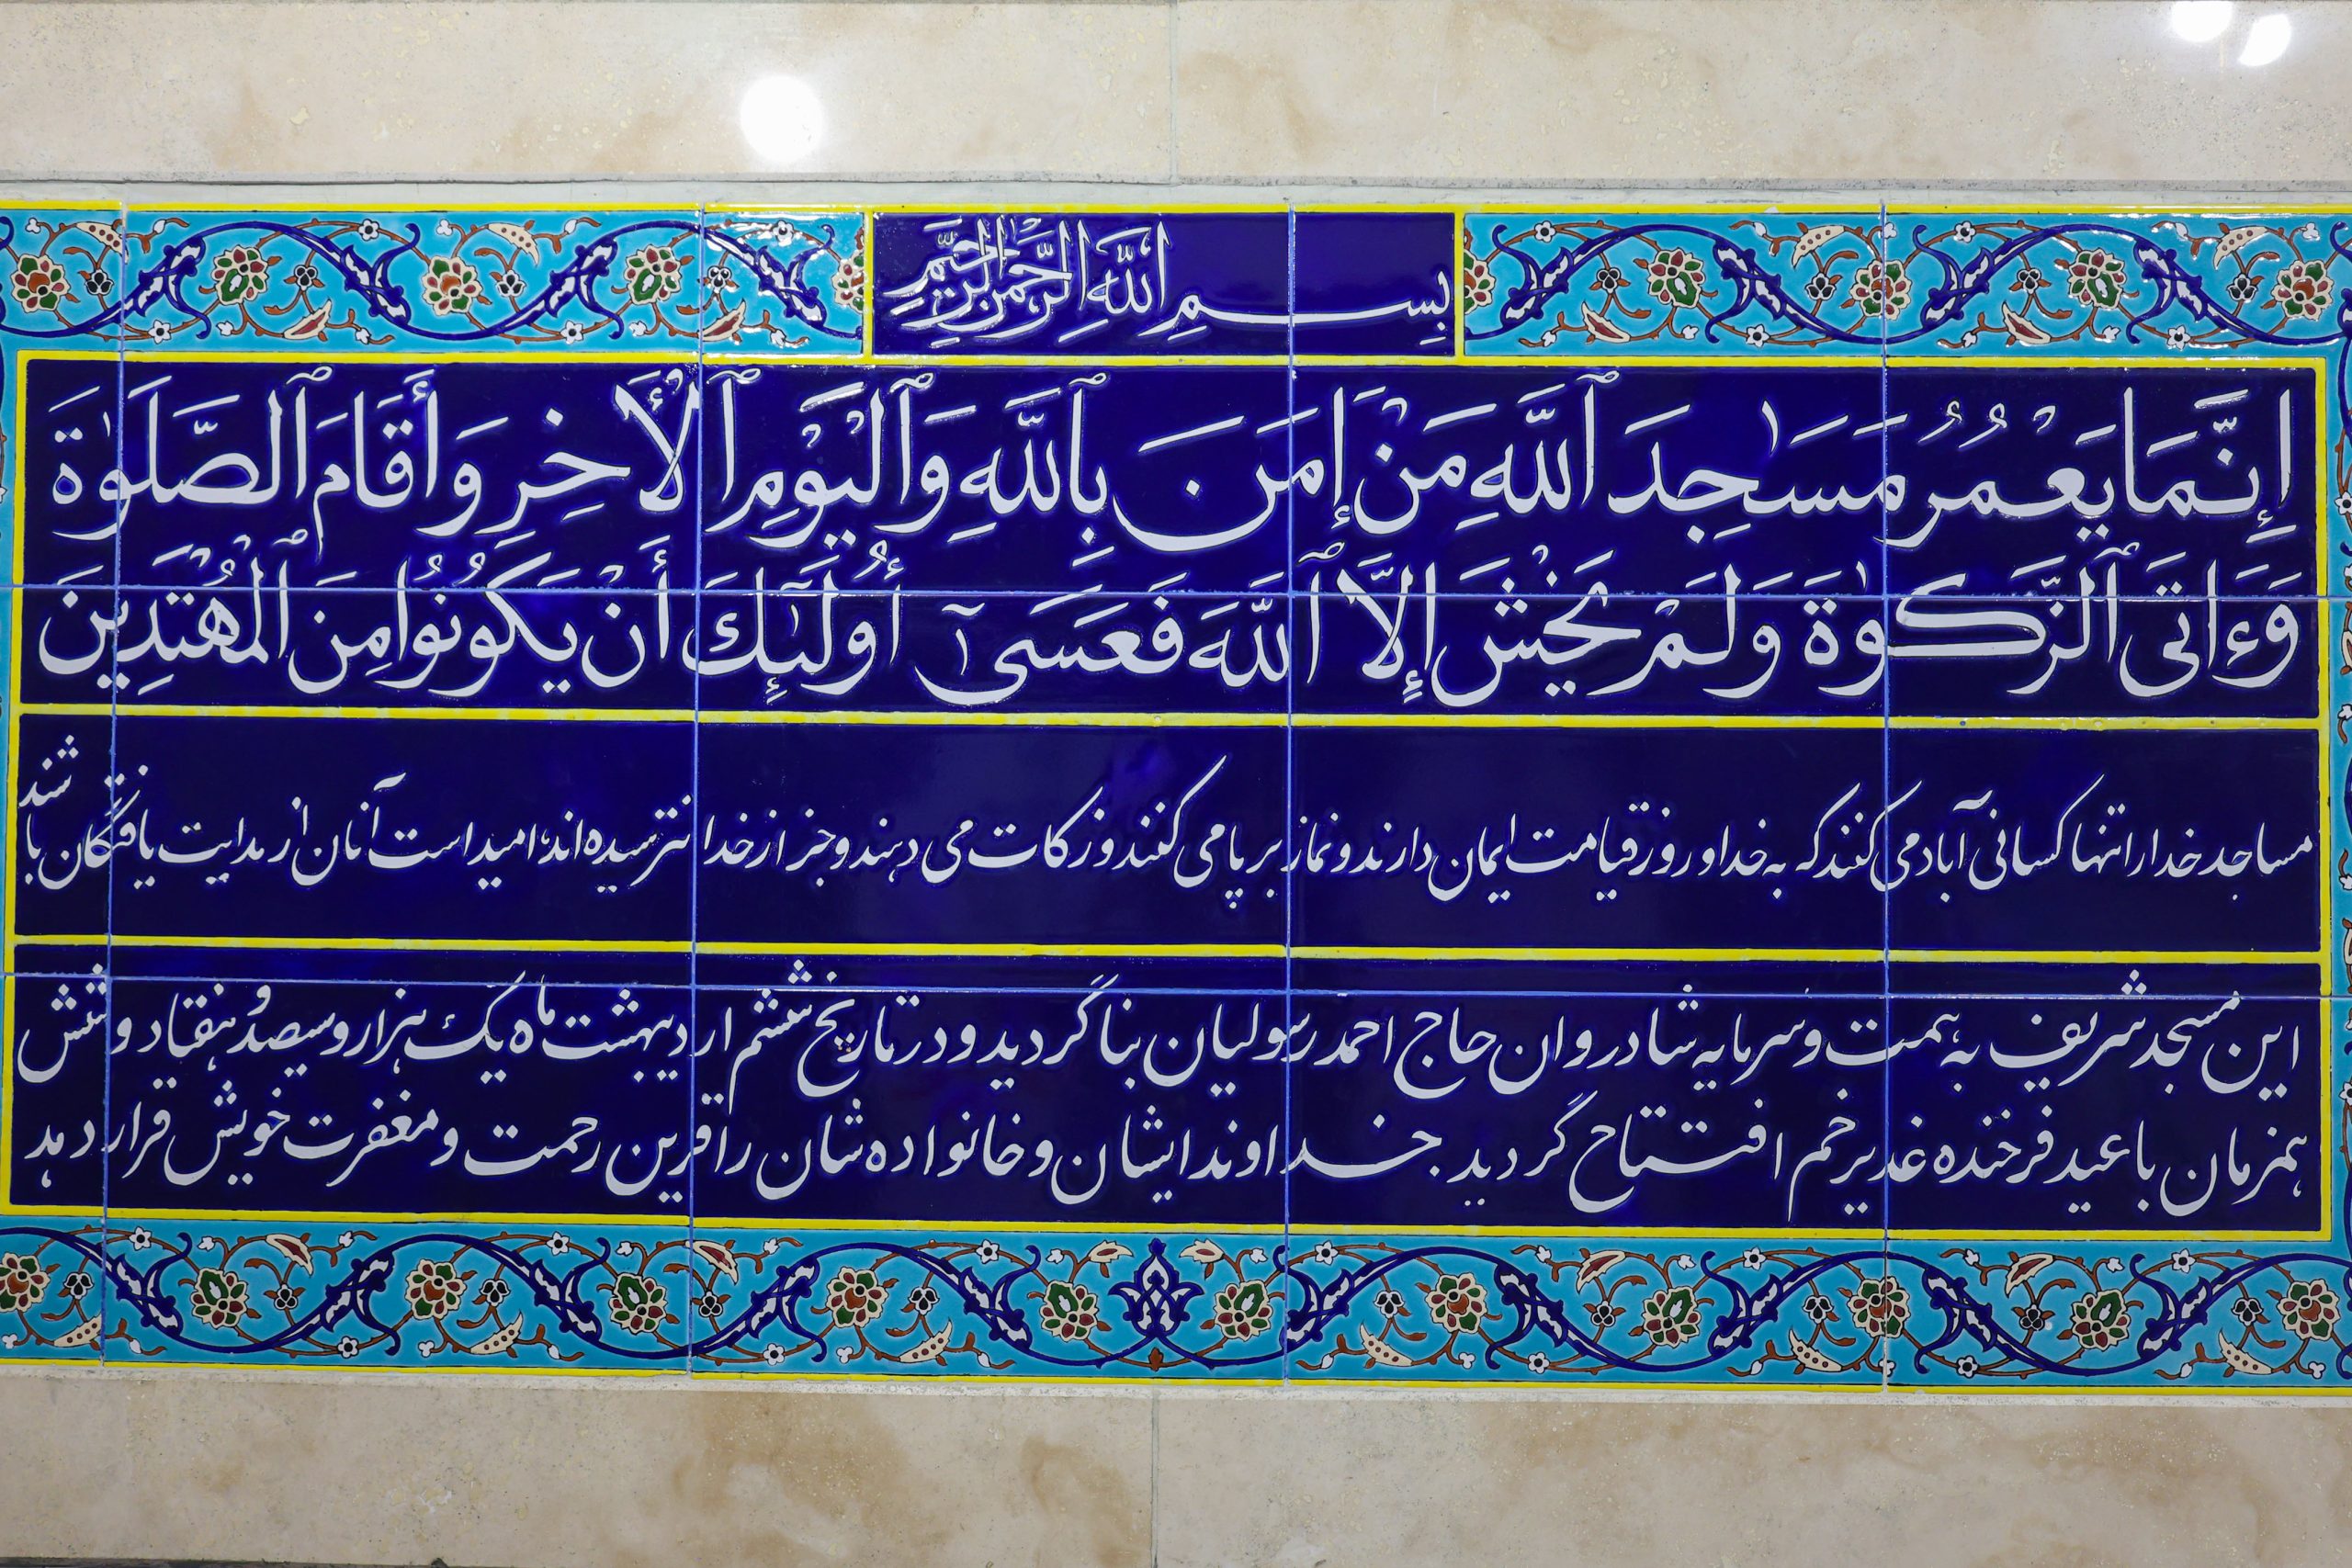 بِسْمِ اللَّهِ الرَّحْمَنِ الرَّحِيمِ
إِنَّمَا يَعْمُرُ مَسَٰجِدَ ٱللَّهِ مَنْ إمَنَ بِٱللَّهِ وَٱلْيَوْمِ ٱلْأَخِرِ وَأَقَامَ ٱلصَّلَوٰةَ
وَءَاتَى ٱلزَّكَوٰةَ وَلَمْ يَخْشَ إِلَّا ٱللَّهَ فَعَسَىٰٓ أُوْلَٰٓئِكَ أَنْ يَكُونُوا مِنَ ٱلْمُهْتَدِينَ
مساجد خدا را تنها کسانی آباد می کنند که به خدا و روز قیامت ایمان دارند و نماز بر پا می کنند و زکات می دهند و جز از خدا نترسیده اند، امید است آنان از هدایت یافتگان باشند
این مسجد شریف به همت و سرمایه شادروان حاج احمد رسولیان بنا گردید و در تاریخ ششم اردیبهشت ماه یک هزار و سیصد و هفتاد و شش
همزمان با عید فرخنده غدیر خم افتتاح گردید. خداوند ایشان و خانواده شان را قرین رحمت و مغفرت خویش قرار دهد